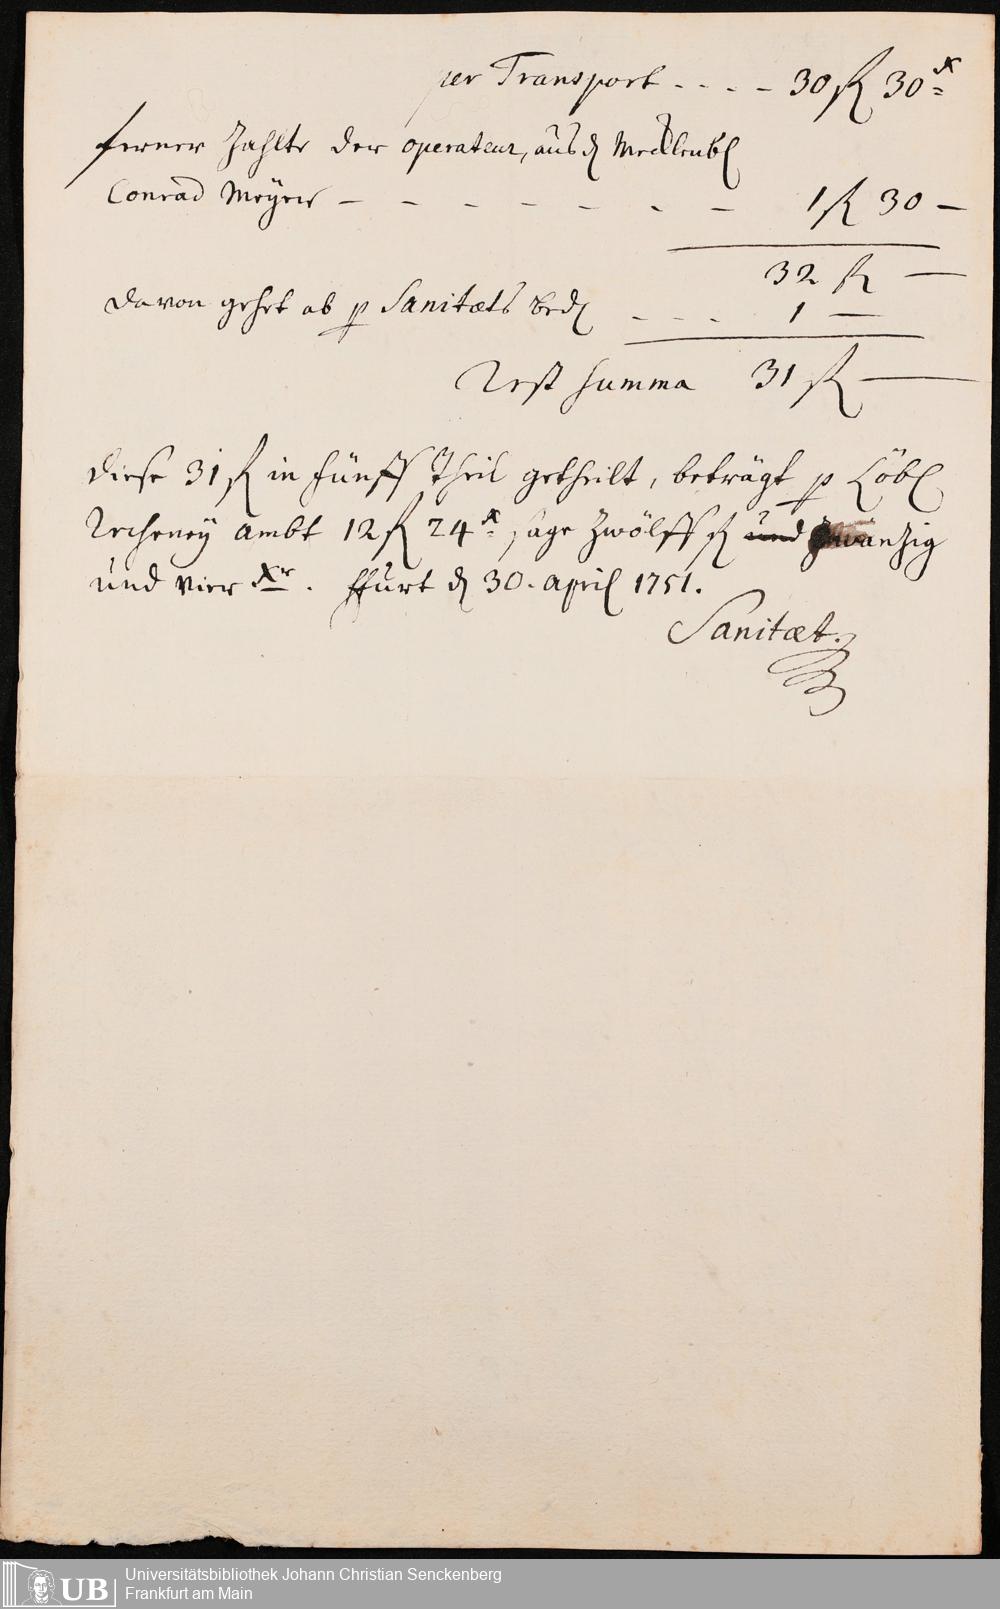 per Transport - - - - 30 fl 30 x
ferner Zahlte der operateur, aus d Mecklenb
Conrad Meyer - - - - - - - 1 fl 30 -
32 fl -
davon gehet ab p Sanitæts Bed - - - 1 -
Rest Summa 31 fl -
diese 31 fl in fünff Theil getheilt, beträgt p Löbl
Recheney Ambt 12 fl 24 x sage Zwölff fl und Zwanzig
und vier Xr. Ffurt d 30. April 1751.
Sanitæt.
UB Universitätsbibliothek Johann Christian Senckenberg
Frankfurt am Main